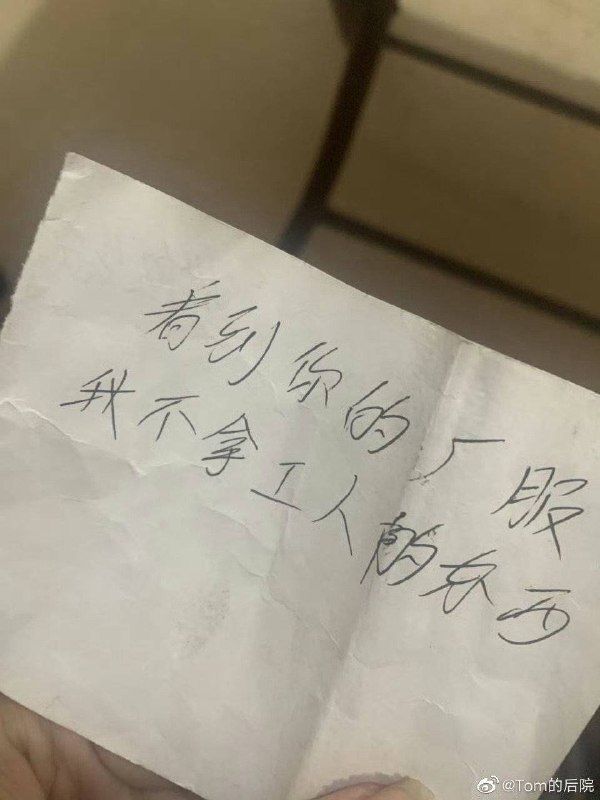 看到你的厂服
我不拿工人的东西
@Tom的后院